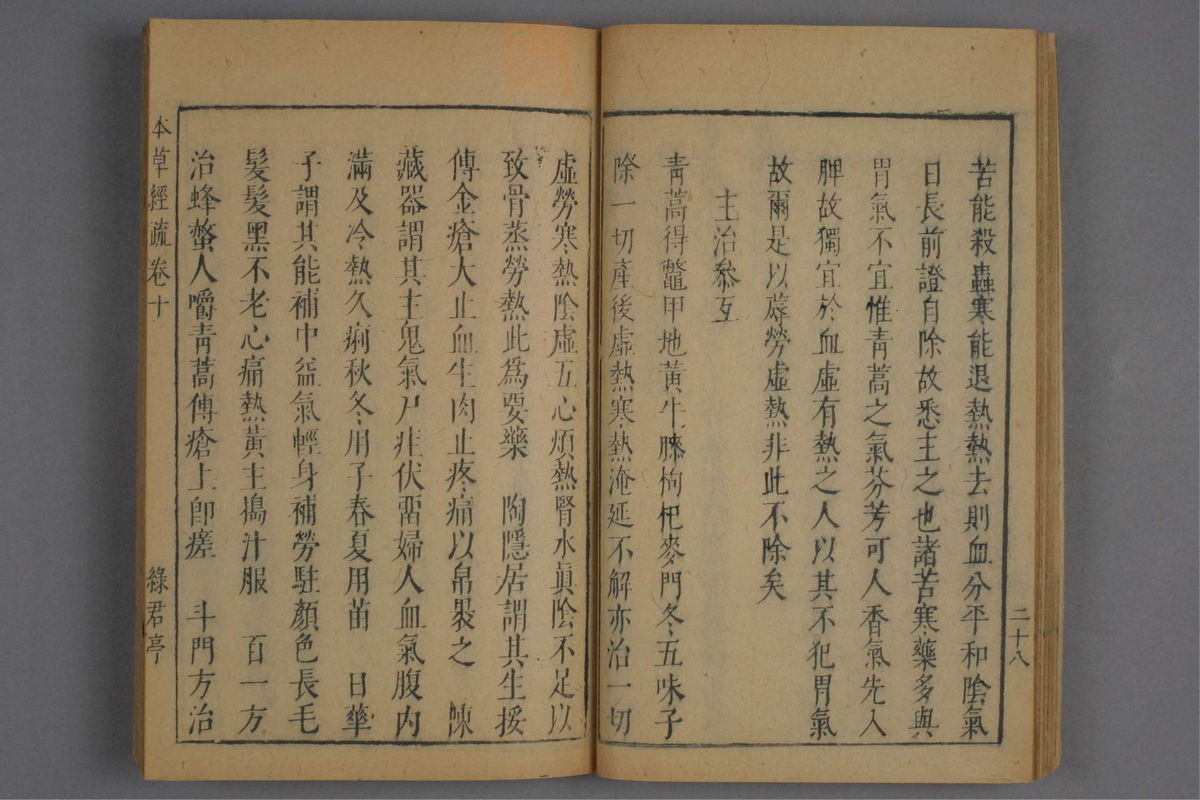 苦能殺蟲寒能退熱熱去則血分平和陰氣
日長前證自除故悉主之也諸苦寒藥多與
胃氣不宜惟青蒿之氣芬芳可人香氣先入
脾故獨宜於血虛有熱之人以其不犯胃氣
故爾是以蓐勞虛熱非此不除矣
主治叅互
青蒿得鼈甲地黃牛膝枸杞麥門冬五味子
除一切產後虛熱寒熱淹延不解亦治一切
二十八
虛勞寒熱陰虛五心煩熱腎水眞陰不足以
致骨蒸勞熱此爲要藥 陶隱居謂其生挼
傅金瘡大止血生肉止疼痛以帛裂之 陳
藏器謂其主鬼氣尸疰伏畱婦人血氣腹內
滿及冷熱久痢秋冬用子春夏用苗 日華
子謂其能補中益氣輕身補勞駐顏色長毛
髮髮黑不老心痛熱黃主搗汁服 百一方
治蜂螫人嚼青蒿傅瘡上卽瘥 斗門方治
本草經疏卷十
綠君亭